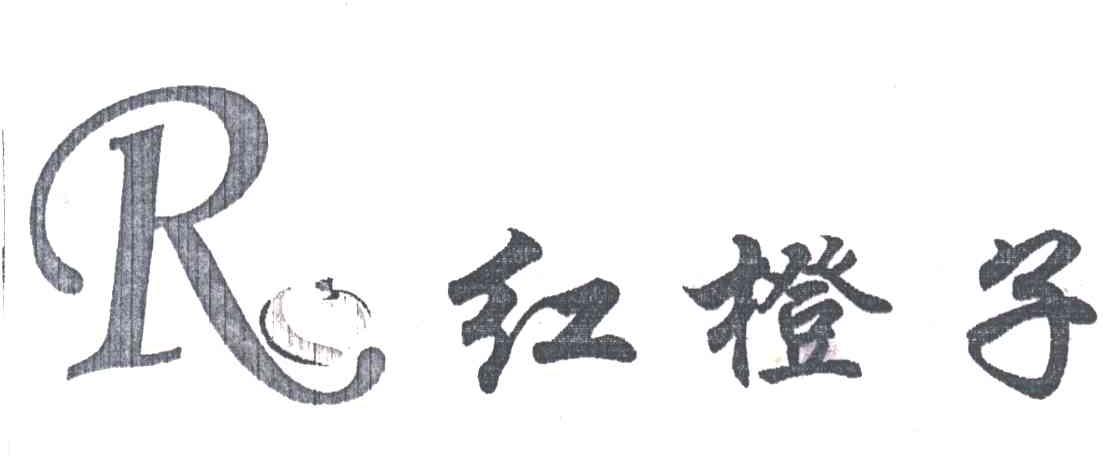 R 红橙子